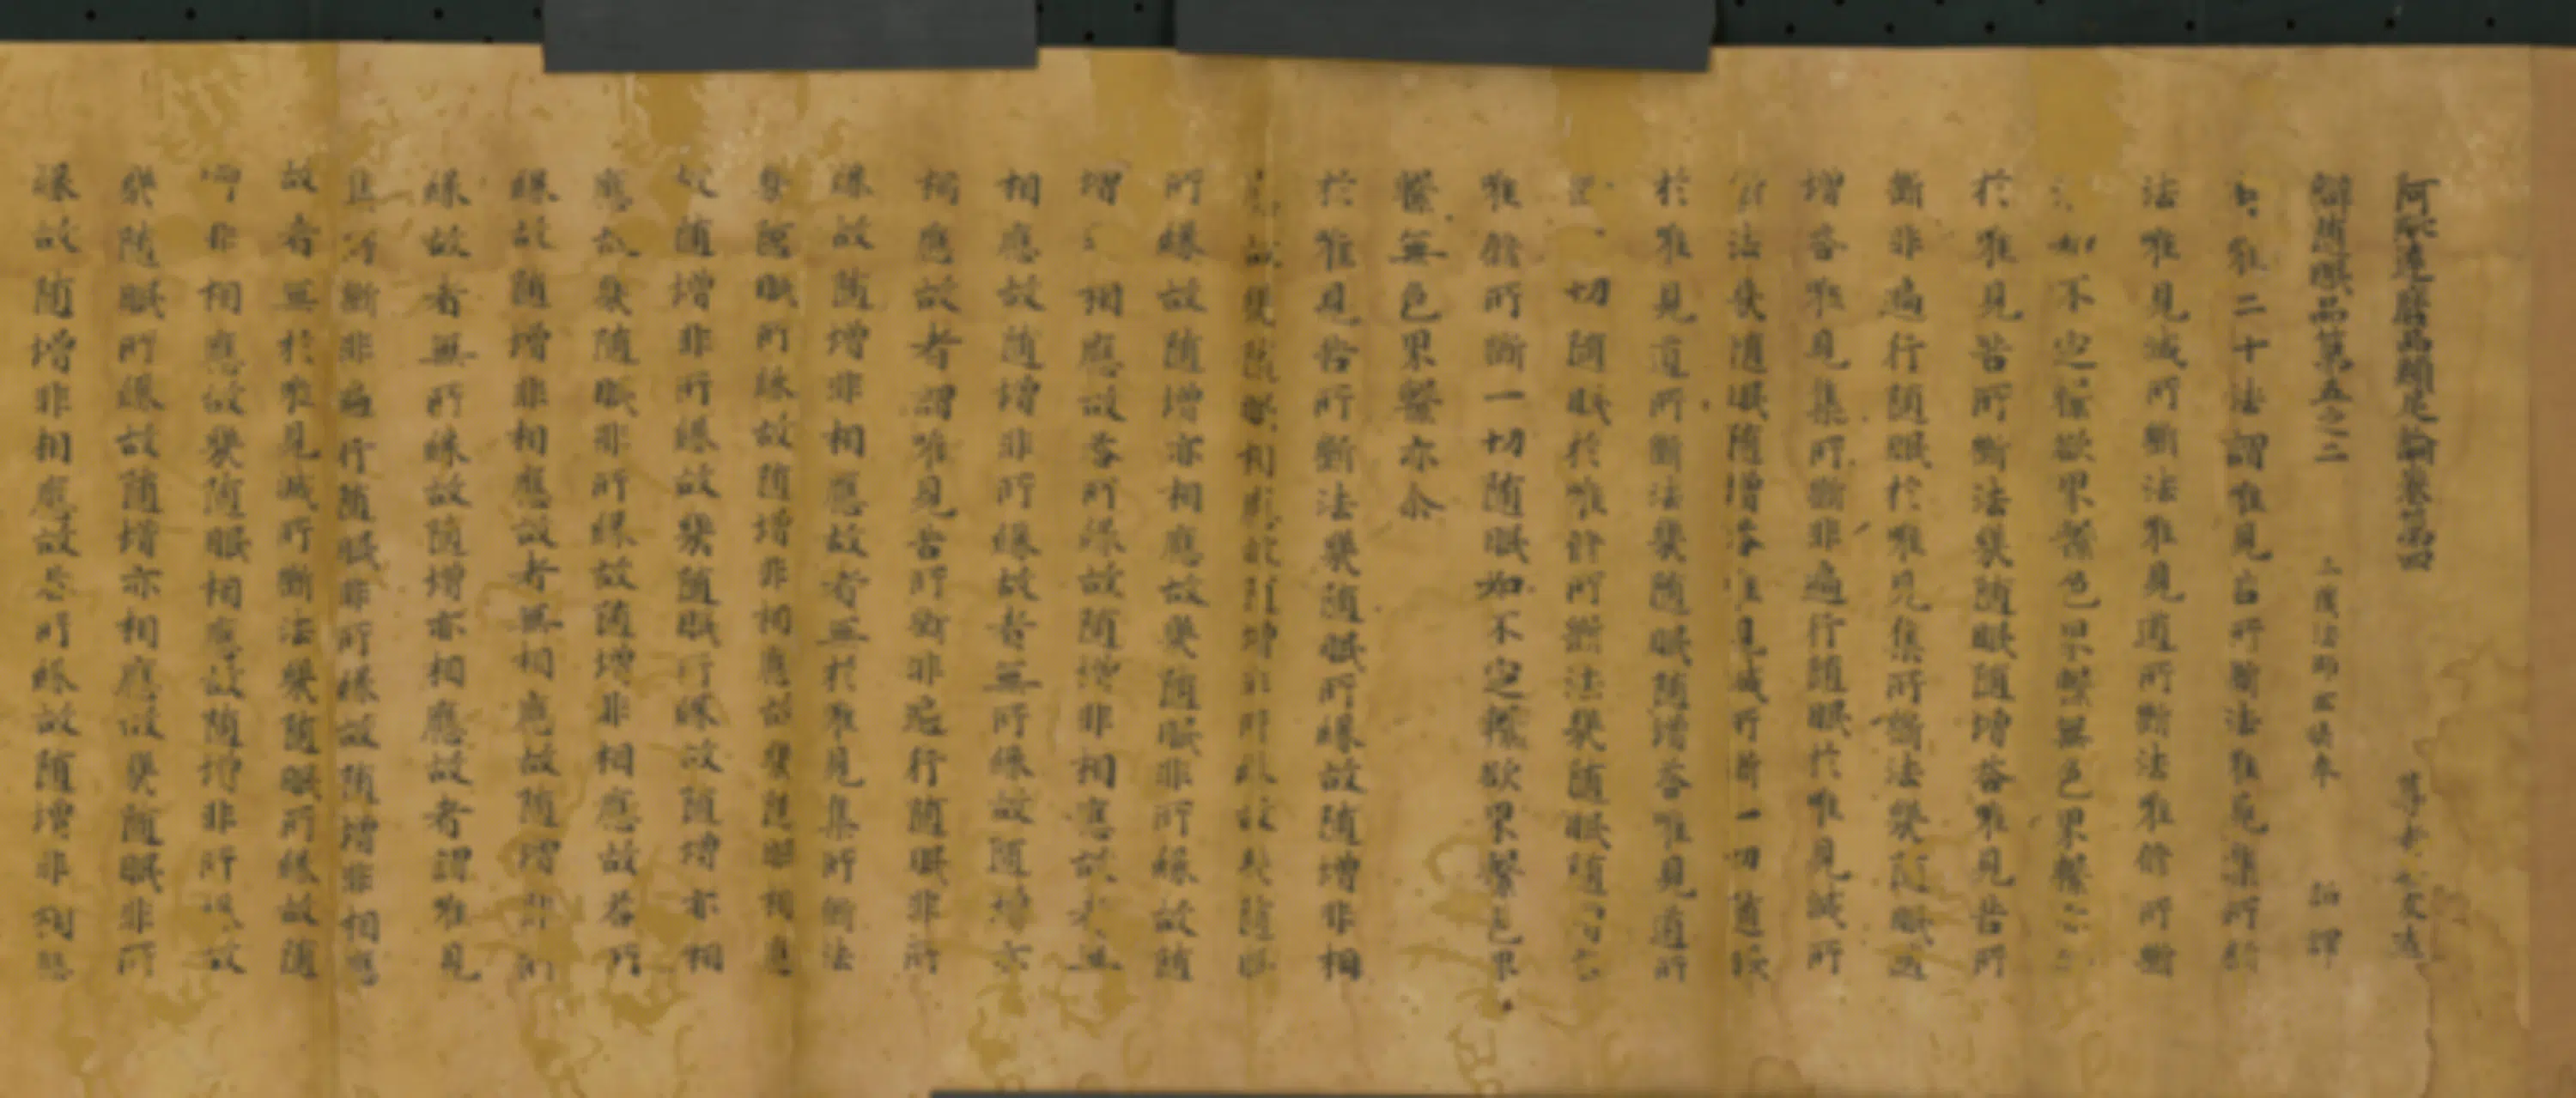 阿毗達磨品類足論卷第四 尊者世友造
辯隨眠品第五之二 三藏法師玄奘奉 詔譯
有二十法謂唯見苦所斷法唯見集所斷
法唯見滅所斷法唯見道所斷法唯餘所斷
如不定繫欲界繫色界繫無色界繫
於唯見苦所斷法幾隨眠隨增答唯見苦所
斷非遍行隨眠於唯見集所斷法幾隨眠隨
增答唯見集所斷非遍行隨眠於唯見滅所
斷法幾隨眠隨增答唯見滅所斷一切隨眠
於唯見道所斷法幾隨眠隨增答唯見道所
一切隨眠於唯餘所斷法幾隨眠隨
唯餘所斷一切隨眠如不定繫欲界繫色界
繫無色界繫亦尒
於唯見苦所斷法幾隨眠所緣故隨增非相
應故幾隨眠相應故隨增非所緣故幾隨眠
所緣故隨增亦相應故幾隨眠非所緣故隨
增 相應故答所緣故隨增非相應故者無
相應故隨增非所緣故者無所緣故隨增亦
相應故者謂唯見苦所斷非遍行隨眠非所
緣故隨增非相應故者無於唯見集所斷法
幾隨眠所緣故隨增非相應故幾隨眠相應
故隨增非所緣故幾隨眠所緣故隨增亦相
應故幾隨眠非所緣故隨增非相應故答所
緣故隨增非相應故者無相應故隨增非所
緣故者無所緣故隨增亦相應故者謂唯見
集所斷非遍行隨眠非所緣故隨增非相應
故者無於唯見滅所斷法幾隨眠所緣故隨
增非相應故幾隨眠相應故隨增非所緣故
幾隨眠所緣故隨增亦相應故幾隨眠非所
緣故隨增非相應故答所緣故隨增非相應